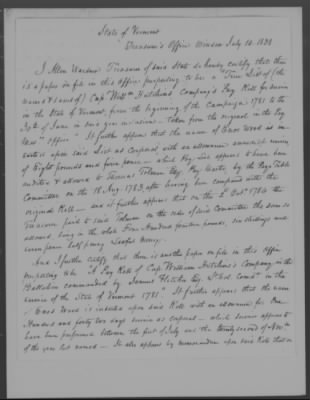 State of Vermont
Treasurer's Office Windsor July 16. 1833
I Allen Wardner Treasurer of said State do hereby certify that there
is a paper on file in this office purporting to be a "True List of (the
names & sums of) Capt Willm Hutchins' Company's Pay Roll for service
in the State of Vermont, from the beginning of the Campaign 1781 to the
of June in said year inclusive - Taken from the original in the Pay
office " It further appears that the name of Enos Wood is in-
serted upon said List as Corporal with an allowance
of Eight pounds and four pence - which Pay Roll appears to have been
audited & allowed to Thomas Tolman Esq. Pay Master by the Pay Table
Committee on the 18 Aug. 1783, after having been compared with the
original Roll - and it further appears that on the 2d Octr 1784 the
Treasurer paid to said Tolman on the order of said Committee the sum so
allowed, being in the whole Four Hundred fourteen pounds, six shillings and
seven pence half penny Lawful Money.
And I further certify that there is another paper on file in this office
purporting to be "A Pay Roll of Capt William Hutchins's Company in the
Battalion commanded by Samuel Fletcher Esq Lt Col. Comdt in the
service of the State of Vermont 1781." It further appears that the name
of Enos Wood is inserted upon said Roll with an allowance for One
Hundred and forty two days service as corporal - which service appears to
have been performed between the first of July and the twenty second of Novm
of the year last named - It also appears by memorandum upon said Roll that in